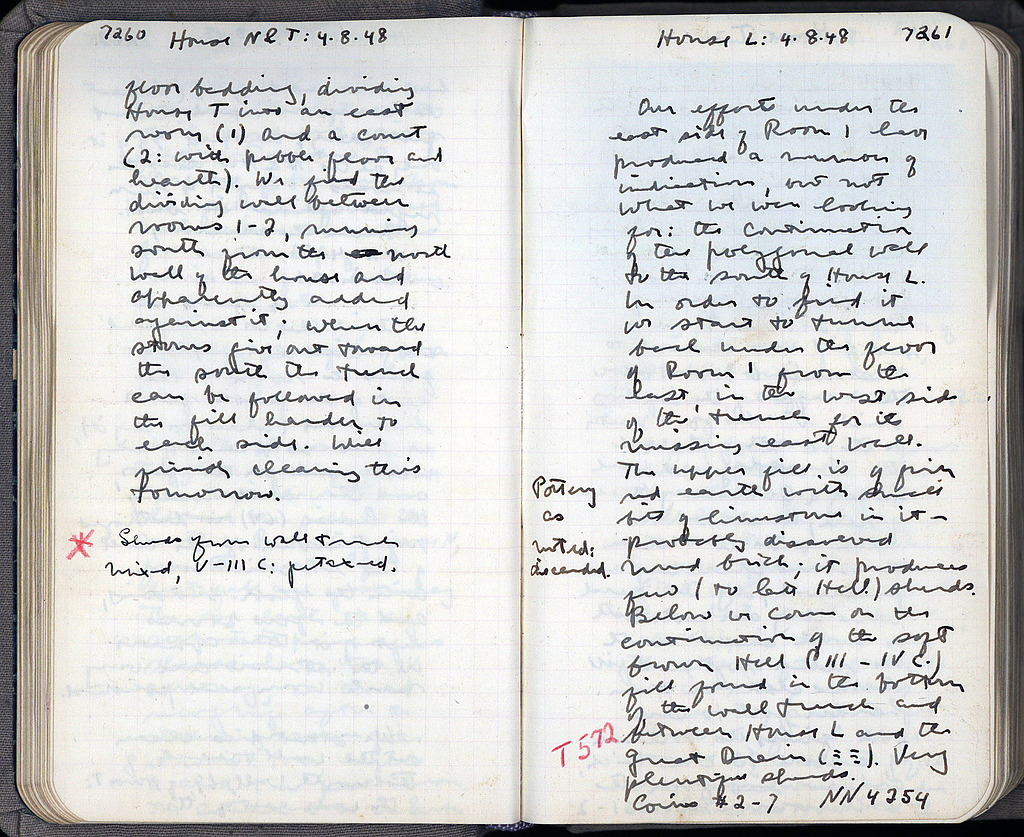 7260 House N & T: 4.8.48
floor bedding, dividing
House T into an east
room (1) and a court
(2: with pebble floor and
hearth). We find the
dividing wall between
rooms 1-2, running
south from the north
wall of the house and
apparently added
against it; when the
stones give out toward
the south the trench
can be followed in
the fill harder to
each side. Will
finish clearing this
tomorrow.
Sherds from wall trench
mixed, V-III C:
House L: 4.8.48 7261
Our efforts under the
east side of Room 1 have
produced a number of
indications, but not
what we were looking
for: the continuation
of the polygonal wall
to the south of House L.
In order to find it
we start to tunnel
back under the floor
of Room 1 from the
east, in the west side
of the trench for its
missing east wall.
The upper fill is of firm
red earth with small
bits of limestone in it -
probably dissolved
mud brick; it produces
few (to late Hell.) sherds.
Below we come on the
continuation of the soft
brown Hell (III - IV C.)
fill found in the bottom
of the wall trench and
between House L and the
Great Drain (ΞΞ). Very
plentiful sherds.
Coins #2-7 NN 4254
Pottery
as
noted:
discarded.
T572